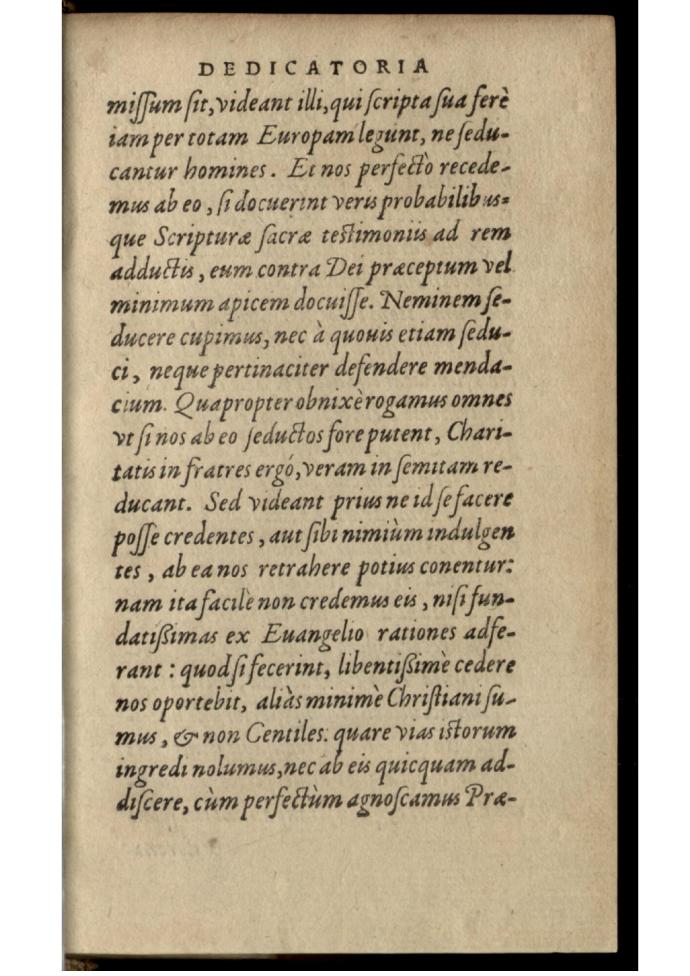 DEDICATORIA
miſſum ſit, videant illi, qui ſcripta ſua ferè
iam per totam Europam legunt, ne ſedu-
cantur homines. Et nos perfectò recede-
mus ab eo, ſi docuerint veris probabilibus-
que Scripturæ ſacræ teſtimoniis ad rem
adductis, eum contra Dei præceptum vel
minimum apicem docuiſſe. Neminem ſe-
ducere cupimus, nec à quouis etiam ſedu-
ci, neque pertinaciter defendere menda-
cium. Quapropter obnixè rogamus omnes
vt ſi nos ab eo ſeductos fore putent, Chari-
tatis in fratres ergó, veram in ſemitam re-
ducant. Sed videant prius ne id ſe facere
poſſe credentes, aut ſibi nimiùm indulgen
tes, ab ea nos retrahere potius conentur:
nam ita facilè non credemus eis, niſi fun-
datißimas ex Euangelio rationes adfe-
rant: quod ſi fecerint, libentißimè cedere
nos oportebit, aliàs minimè Chriſtiani ſu-
mus, & non Gentiles: quare vias iſtorum
ingredi nolumus, nec ab eis quicquam ad-
diſcere, cùm perfectùm agnoſcamus Præ-